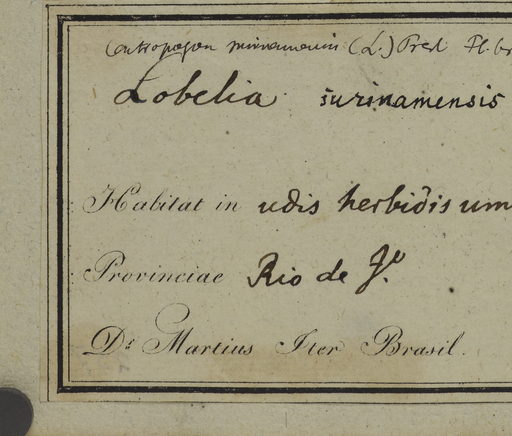 Centropogon surinamensis (L.) Presl Fl. br
Lobelia surinamensis
Habitat in udis herbidis um
Provinciae Rio de Jº.
Dr. Martius Iter Brasil.